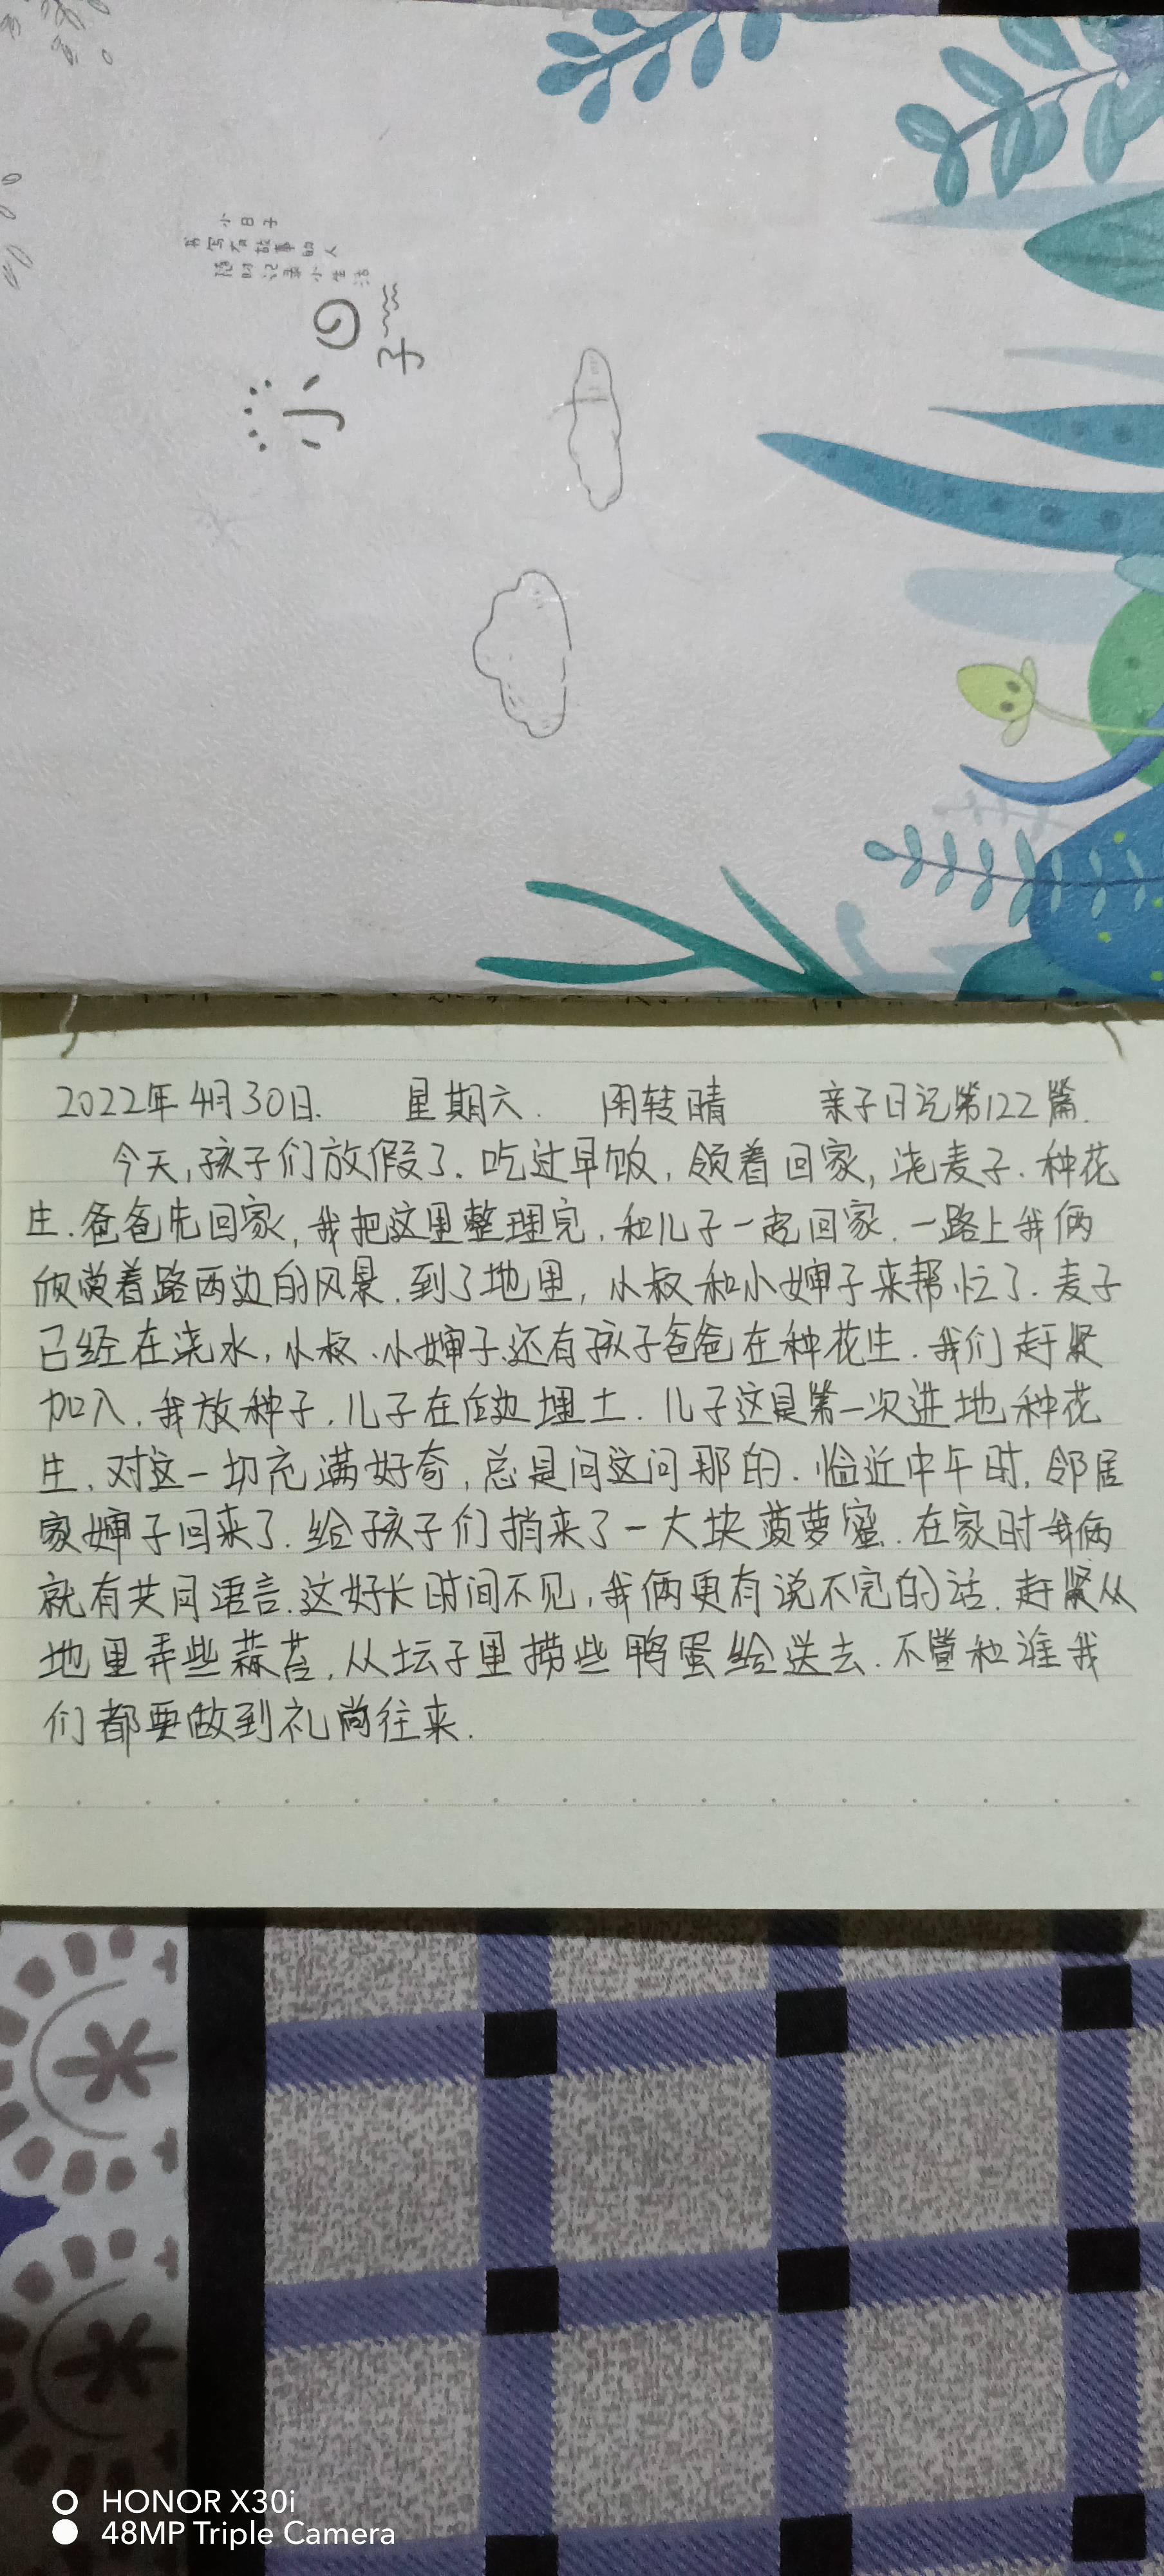 小日子
书写有故事的人
随时记录小生活
小日子
2022年4月30日. 星期六. 阴转晴 亲子日记第122篇.
今天,孩子们放假了.吃过早饭,领着回家,浇麦子.种花
生.爸爸先回家,我把这里整理完,和儿子一起回家.一路上我俩
欣赏着路两边的风景.到了地里,小叔和小婶子来帮忙了.麦子
已经在浇水,小叔、小婶子还有孩子爸爸在种花生.我们赶紧
加入.我放种子.儿子在后边埋土.儿子这是第一次进地种花
生,对这一切充满好奇,总是问这问那的.临近中午时,邻居
家婶子回来了.给孩子们捎来了一大块菠萝蜜.在家时我俩
就有共同语言.这好长时间不见,我俩更有说不完的话.赶紧从
地里弄些蒜苔,从坛子里捞些鸭蛋给送去.不管和谁我
们都要做到礼尚往来.
HONOR X30i
48MP Triple Camera